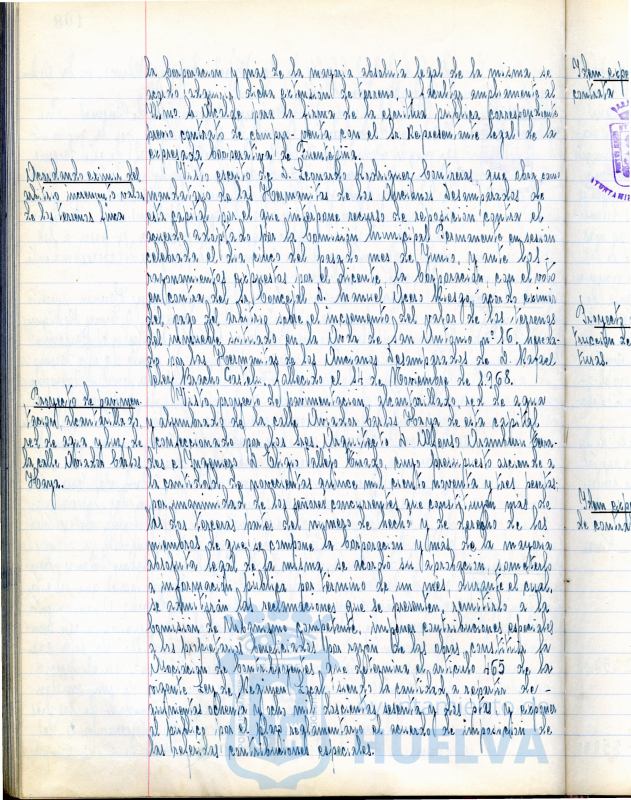 la Corporación y más de la mayoría absoluta legal de la misma, se
acordó adquirir dicha extensión de terreno, y facultar ampliamente al
Iltmo. Sr. Alcalde para la firma de la escritura pública correspondiente
previo contrato de compra-venta con el Representante legal de la
expresada Cooperativa de
Acordando eximir del
arbitrio incremento valor
de los terrenos finca
Visto escrito de D. Leonardo Rodriguez Contreras que obra como
mandatario de las Hermanitas de los Ancianos Desamparados de
esta capital por el que interpone recurso de reposición contra el
acuerdo adoptado por la Comisión Municipal Permanente en sesión
celebrada el día cinco del pasado mes de Junio, y ante los
razonamientos expuestos por el dicente, la Corporación, con el voto
en contra del Concejal D. Manuel Riesgo, acordó eximir
del pago del arbitrio sobre el incremento del valor de los terrenos
del inmueble situado en la Avda de San Antonio nº 16, hereda-
do por las Hermanitas de los Ancianos Desamparados de D. Rafael
fallecido el 14 de Noviembre de 1.968.
Proyecto de pavimen-
tación, alcantarillado,
red de agua y luz de
la calle Aviador Carlos
Haya.
Visto proyecto de pavimentación, alcantarillado, red de agua
y alumbrado de la calle Aviador Carlos Haya de esta capital
confeccionado por los Sres. Arquitecto D. Alfonso
e Ingeniero D. Vallejo cuyo presupuesto asciende a
la cantidad de novecientas quince mil ciento noventa y tres pesetas:
por unanimidad de los señores concurrentes que constituyen más de
las dos terceras partes del número de hecho y de derecho de los
miembros de que se compone la Corporación y más de la mayoría
absoluta legal de la misma se acordó su aprobación, someterlo
a información pública por término de un mes, durante el cual,
se admitirán las reclamaciones que se presenten, remitirlo a la
Comisión de Urbanismo competente, imponer contribuciones especiales
a los propietarios beneficiados por razón de las obras, constituir la
Asociación de Contribuyentes que determina el artículo 465 de la
vigente Ley de Régimen Local, siendo la cantidad a repartir de
ochenta y ocho mil doscientas sesenta y dos ptas y exponer
al público por el plazo reglamentario el acuerdo de imposición de
las referidas contribuciones especiales.
Idem
contrata
Proyecto
trucción de
turas.
Idem
de
HUELVA